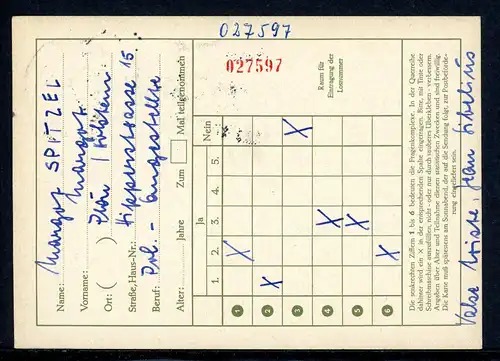 027597
027597
Name: Margot SPITZEL
Vorname: Margot
Ort: ( ) Plön / Holstein
Straße, Haus-Nr.: Hipperstrasse 15
Beruf: Pol. - Angestellte
Alter: Jahre Zum Mal teilgenommen
Raum für
Eintragung der
Losnummer
Ja
1. 2. 3. 4. 5. Nein
1 X
2 X
3 X
4 X
5 X
6 X
Die senkrechten Ziffern 1 bis 6 bedeuten die Fragenkomplexe. In der Querreihe
dahinter wird ein × in der entsprechenden Spalte eingetragen. Bitte, mit Tinte oder
Schreibmaschine auszufüllen, nicht - oder nur durch sauberes Überkleben - verbessern.
Angaben über Alter und Teilnahme dienen statistischen Zwecken und sind freiwillig.
Die Karte muß spätestens am Sonnabend, der auf die Sendung folgt, zur Postbeförde-
rung eingeliefert sein.
Valse triste, Jean Sibelius